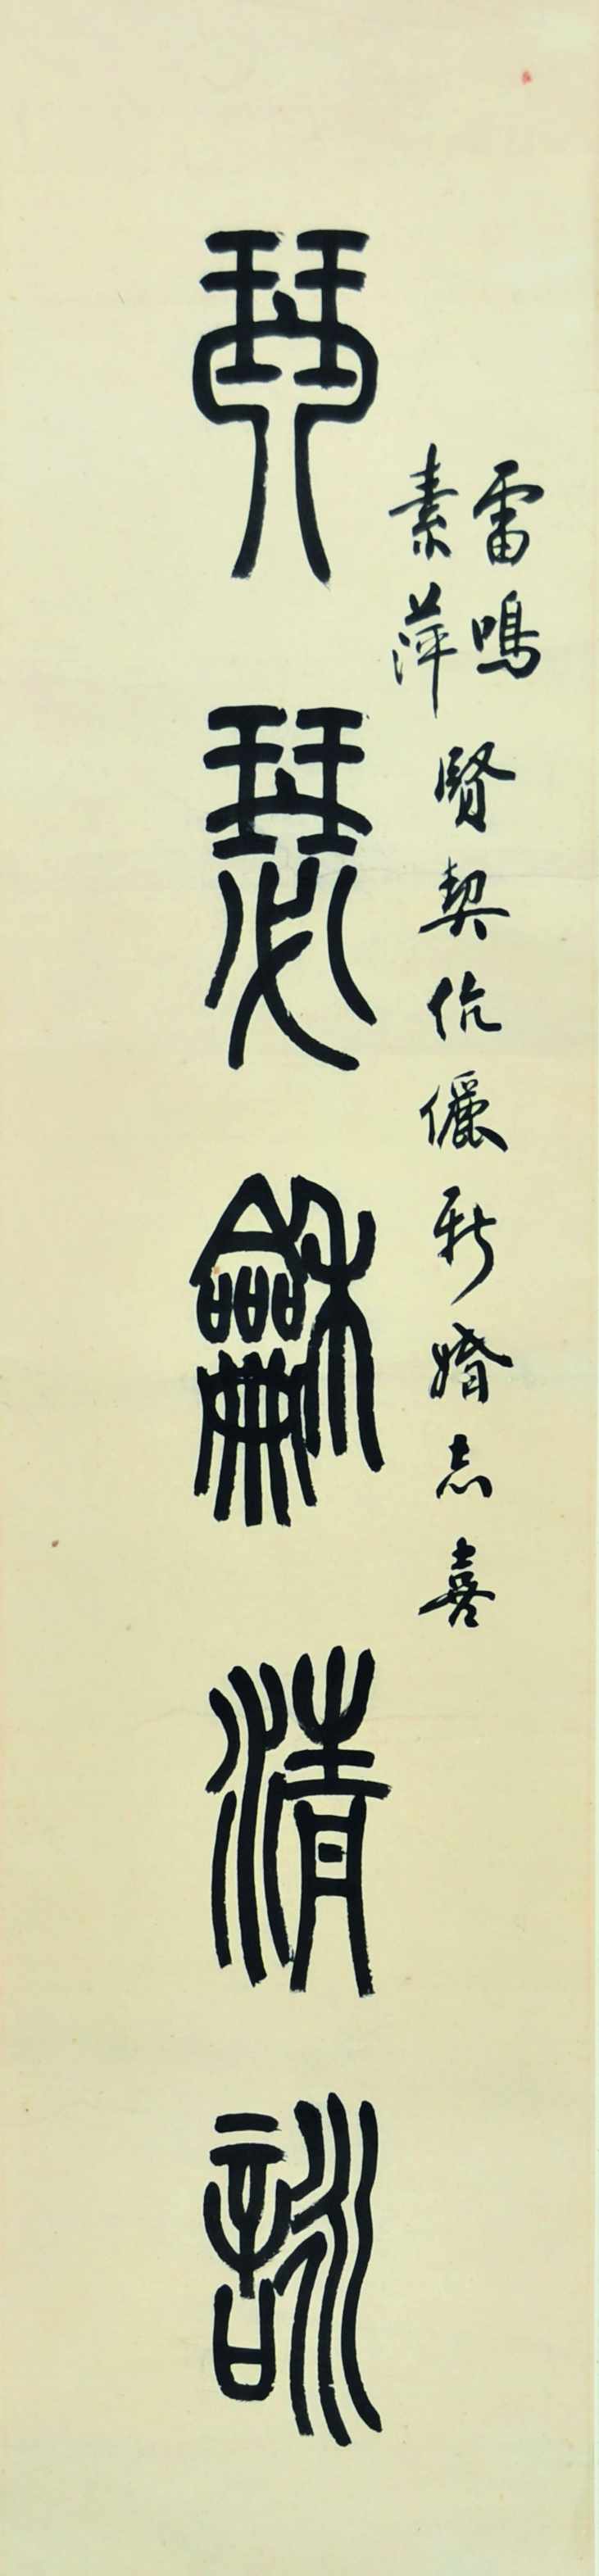 雷鳴
素萍
賢契伉儷新婚志喜
琴瑟龢清詠